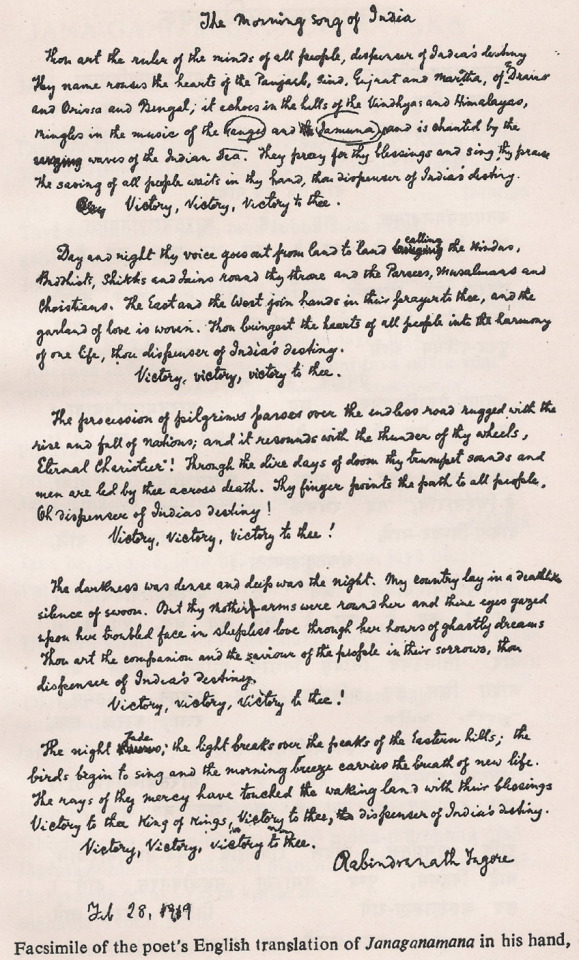 The Morning song of India
Thou art the ruler of the minds of all people, dispenser of India's destiny
Thy name rouses the hearts of the Panjaub, Sind, Gujrat and Maratha, of Dravid
and Orissa and Bengal; it echoes in the hills of the Vindhyas and Himalayas,
mingles in the music of the Ganges and Jamuna, and is chanted by the
waves of the Indian Sea. They pray for thy blessings and sing thy praise
The saving of all people waits in thy hand, thou dispenser of India's destiny.
Victory, Victory, Victory to thee.
Day and night thy voice goes out from land to land calling the Hindus,
Buddhists, Sikhs and Jains round thy throne and the Parsees, Musalmans and
Christians. The East and the West join hands in their prayer to thee, and the
garland of love is woven. Thou bringest the hearts of all people into the harmony
of one life, thou dispenser of India's destiny.
Victory, victory, victory to thee.
The procession of pilgrims passes over the endless road rugged with the
rise and fall of nations; and it resounds with the thunder of thy wheels,
Eternal Charioteer! Through the dire days of doom thy trumpet sounds and
men are led by thee across death. Thy finger points the path to all people,
Oh dispenser of India's destiny!
Victory, victory, victory to thee!
The darkness was dense and deep was the night. My country lay in a deathlike
silence of swoon. But thy mother arms were round her and thine eyes gazed
upon her troubled face in sleepless love through her hours of ghastly dreams
Thou art the companion and the saviour of the people in their sorrows, thou
dispenser of India's destiny.
Victory, victory, victory to thee!
The night fades; the light breaks over the peaks of the Eastern hills; the
birds begin to sing and the morning breeze carries the breath of new life.
The rays of thy mercy have touched the waking land with their blessings
Victory to thee King of Kings, Victory to thee, dispenser of India's destiny.
Victory, Victory, victory to thee.
Rabindranath Tagore
Feb 28, 1919
Facsimile of the poet's English translation of Janaganamana in his hand,